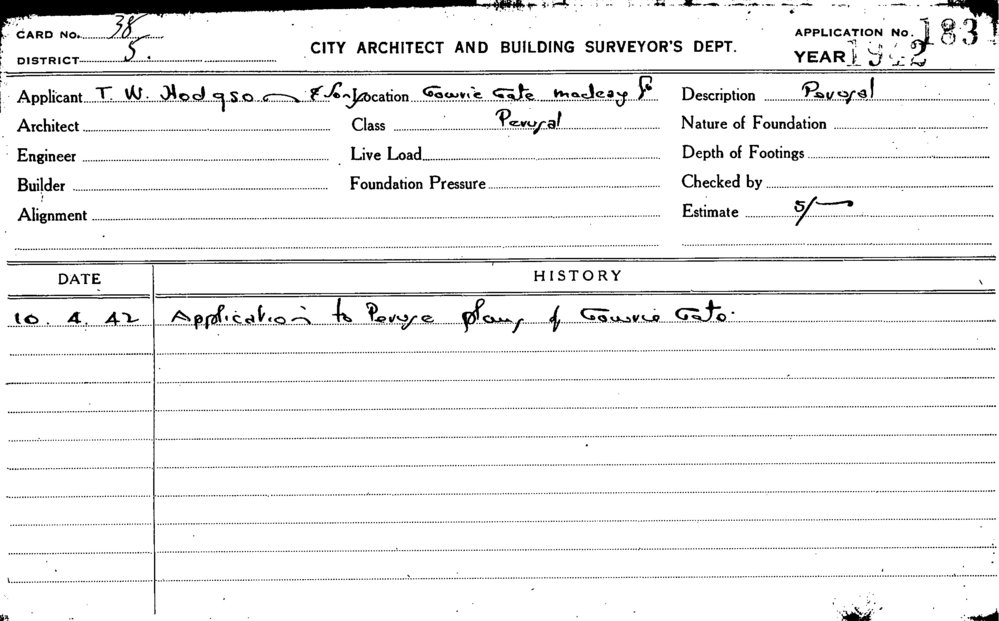 CARD No. 38
DISTRICT 5.
CITY ARCHITECT AND BUILDING SURVEYOR'S DEPT.
APPLICATION No. 183
YEAR 1942
Applicant T. W. Hodgson & Son Location Gowrie Gate Macleay St Description Perusal
Architect Class Perusal Nature of Foundation
Engineer Live Load Depth of Footings
Builder Foundation Pressure Checked by
Alignment Estimate 5/-
DATE HISTORY
10. 4. 42 Application to Peruse plans of Gowrie Gate.